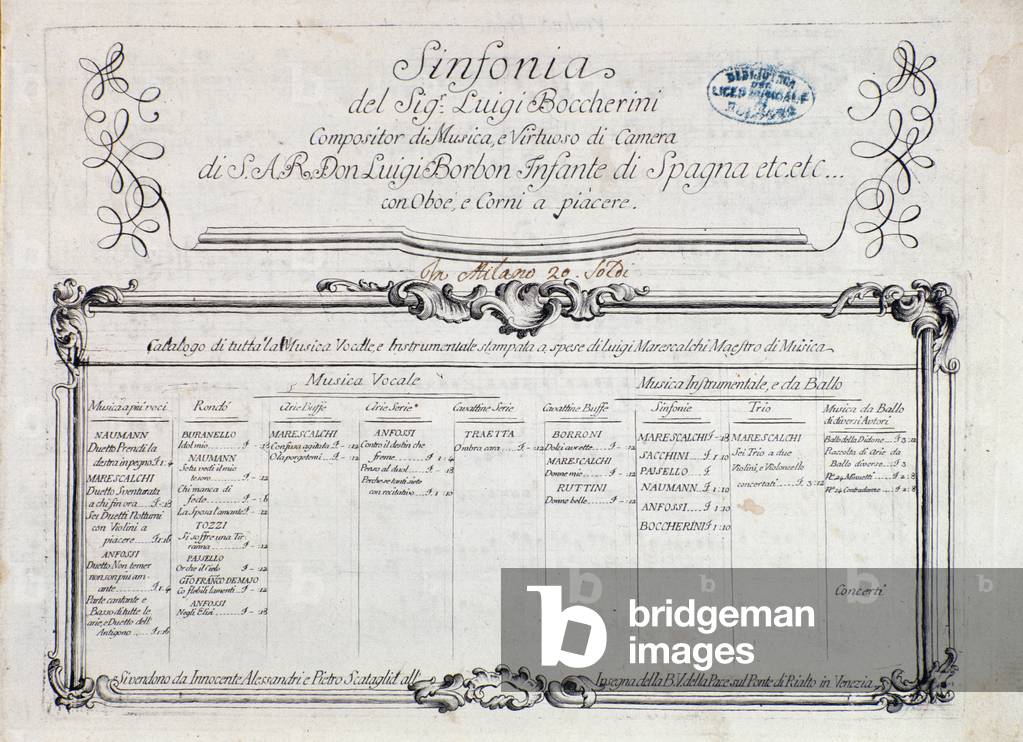 Sinfonia
del Sig.r Luigi Boccherini
Compositor di Musica, e Virtuoso di Camera
di S.A.R. Don Luigi Borbon Infante di Spagna etc. etc...
con Oboe, e Corni a piacere.
BIBLIOTECA
DEL
LICEO MUSICALE
DI
BOLOGNA
In Milano 20. Soldi
Catalogo di tutta la Musica Vocale, e Instrumentale stampata a spese di Luigi Marescalchi Maestro di Musica
Musica Vocale
Musica a più voci
NAUMANN
Duetto Prendi la
destra in pegno £ 1:4
MARESCALCHI
Duetto Sventurata
a chi fin ora £ -:18
Sei Duetti Notturni
con Violini a
piacere £ 1:16
ANFOSSI
Duetto Non temer
non son più am-
ante £ 1:4
Parte cantante e
Basso di tutte le
arie, e Duetto dell'
Antigono £ 1:16
Rondó
BURANELLO
Idol mio £ -:18
NAUMANN
Se tu vedi il mio
tesoro £ -:12
Chi manca di
fede £ -:16
La Sposa l'amante £ -:12
TOZZI
Si soffre una Tir-
ranna £ -:12
PAISELLO
Or che il Cielo £ -:12
GIO FRANCO DE MAJO
Co flebili lamenti £ -:12
ANFOSSI
Negli Elisi £ -:18
Arie Buffe
MARESCALCHI
Confusa agitata £ -:12
O la porgetemi £ -:12
Arie Serie
ANFOSSI
Contro il destin che
freme £ 1:4
Penso al duol £ -:18
Perche se tanti siete
con recitativo £ 1:10
Cavattine Serie
TRAETTA
Ombra cara £ -:12
Cavattine Buffe
BORRONI
Dolci aurette £ -:12
MARESCALCHI
Donne mie £ -:12
RUTTINI
Donne belle £ -:12
Musica Instrumentale, e da Ballo
Sinfonie
MARESCALCHI £ -:18
SACCHINI £ 1:10
PAISELLO £
NAUMANN £ 1:10
ANFOSSI £ 1:10
BOCCHERINI £ 1:10
Trio
MARESCALCHI
Sei Trio a due
Violini, e Violoncello
concertati £ 3:12
Musica da Ballo
di diversi Autori
Balli della Didone £ 3:12
Raccolta di Arie da
Ballo diverse £ 3
N.º 24 Minuetti £ 2:8
N.º 24 Contradanze £ 2:8
Concerti
Si vendono da Innocente Alessandri e Pietro Scataglia all' Insegna della B.V. della Pace sul Ponte di Rialto in Venezia
b
bridgeman
images